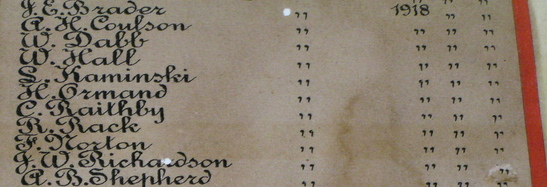 J. E. Brader 1918 " "
A. H. Coulson " " " "
W. Dabb " " " "
W. Hall " " " "
S. Kaminski " " " "
H. Ormand " " " "
C. Raithby " " " "
R. Rack " " " "
F. Norton " " " "
J. W. Richardson " " " "
A. B. Shepherd " " " "